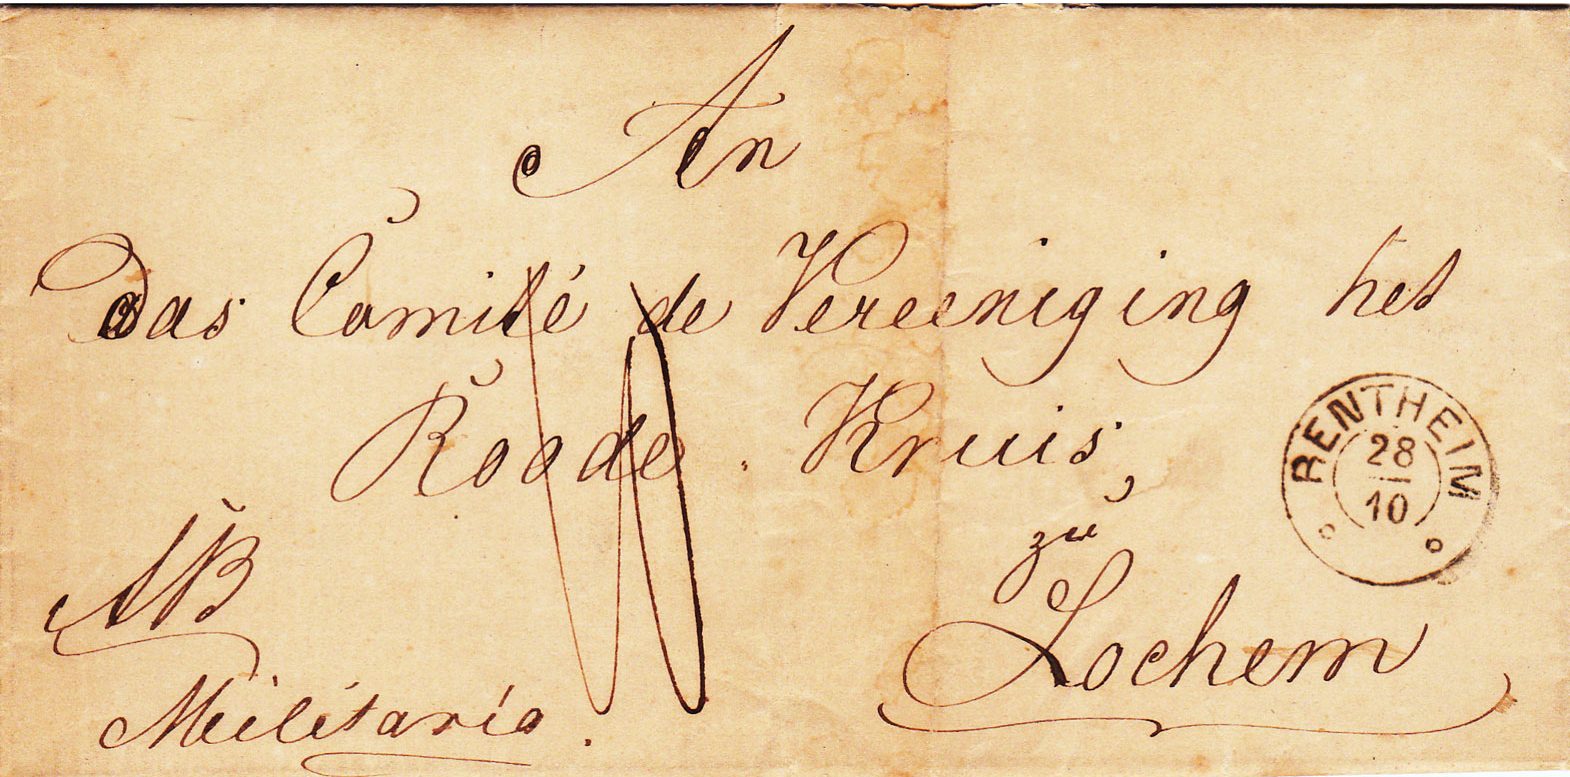 An
das Comité de Vereeniging het
Roode Kruis,
zu
Lochem
RENTHEIM
28
10
Militaria.